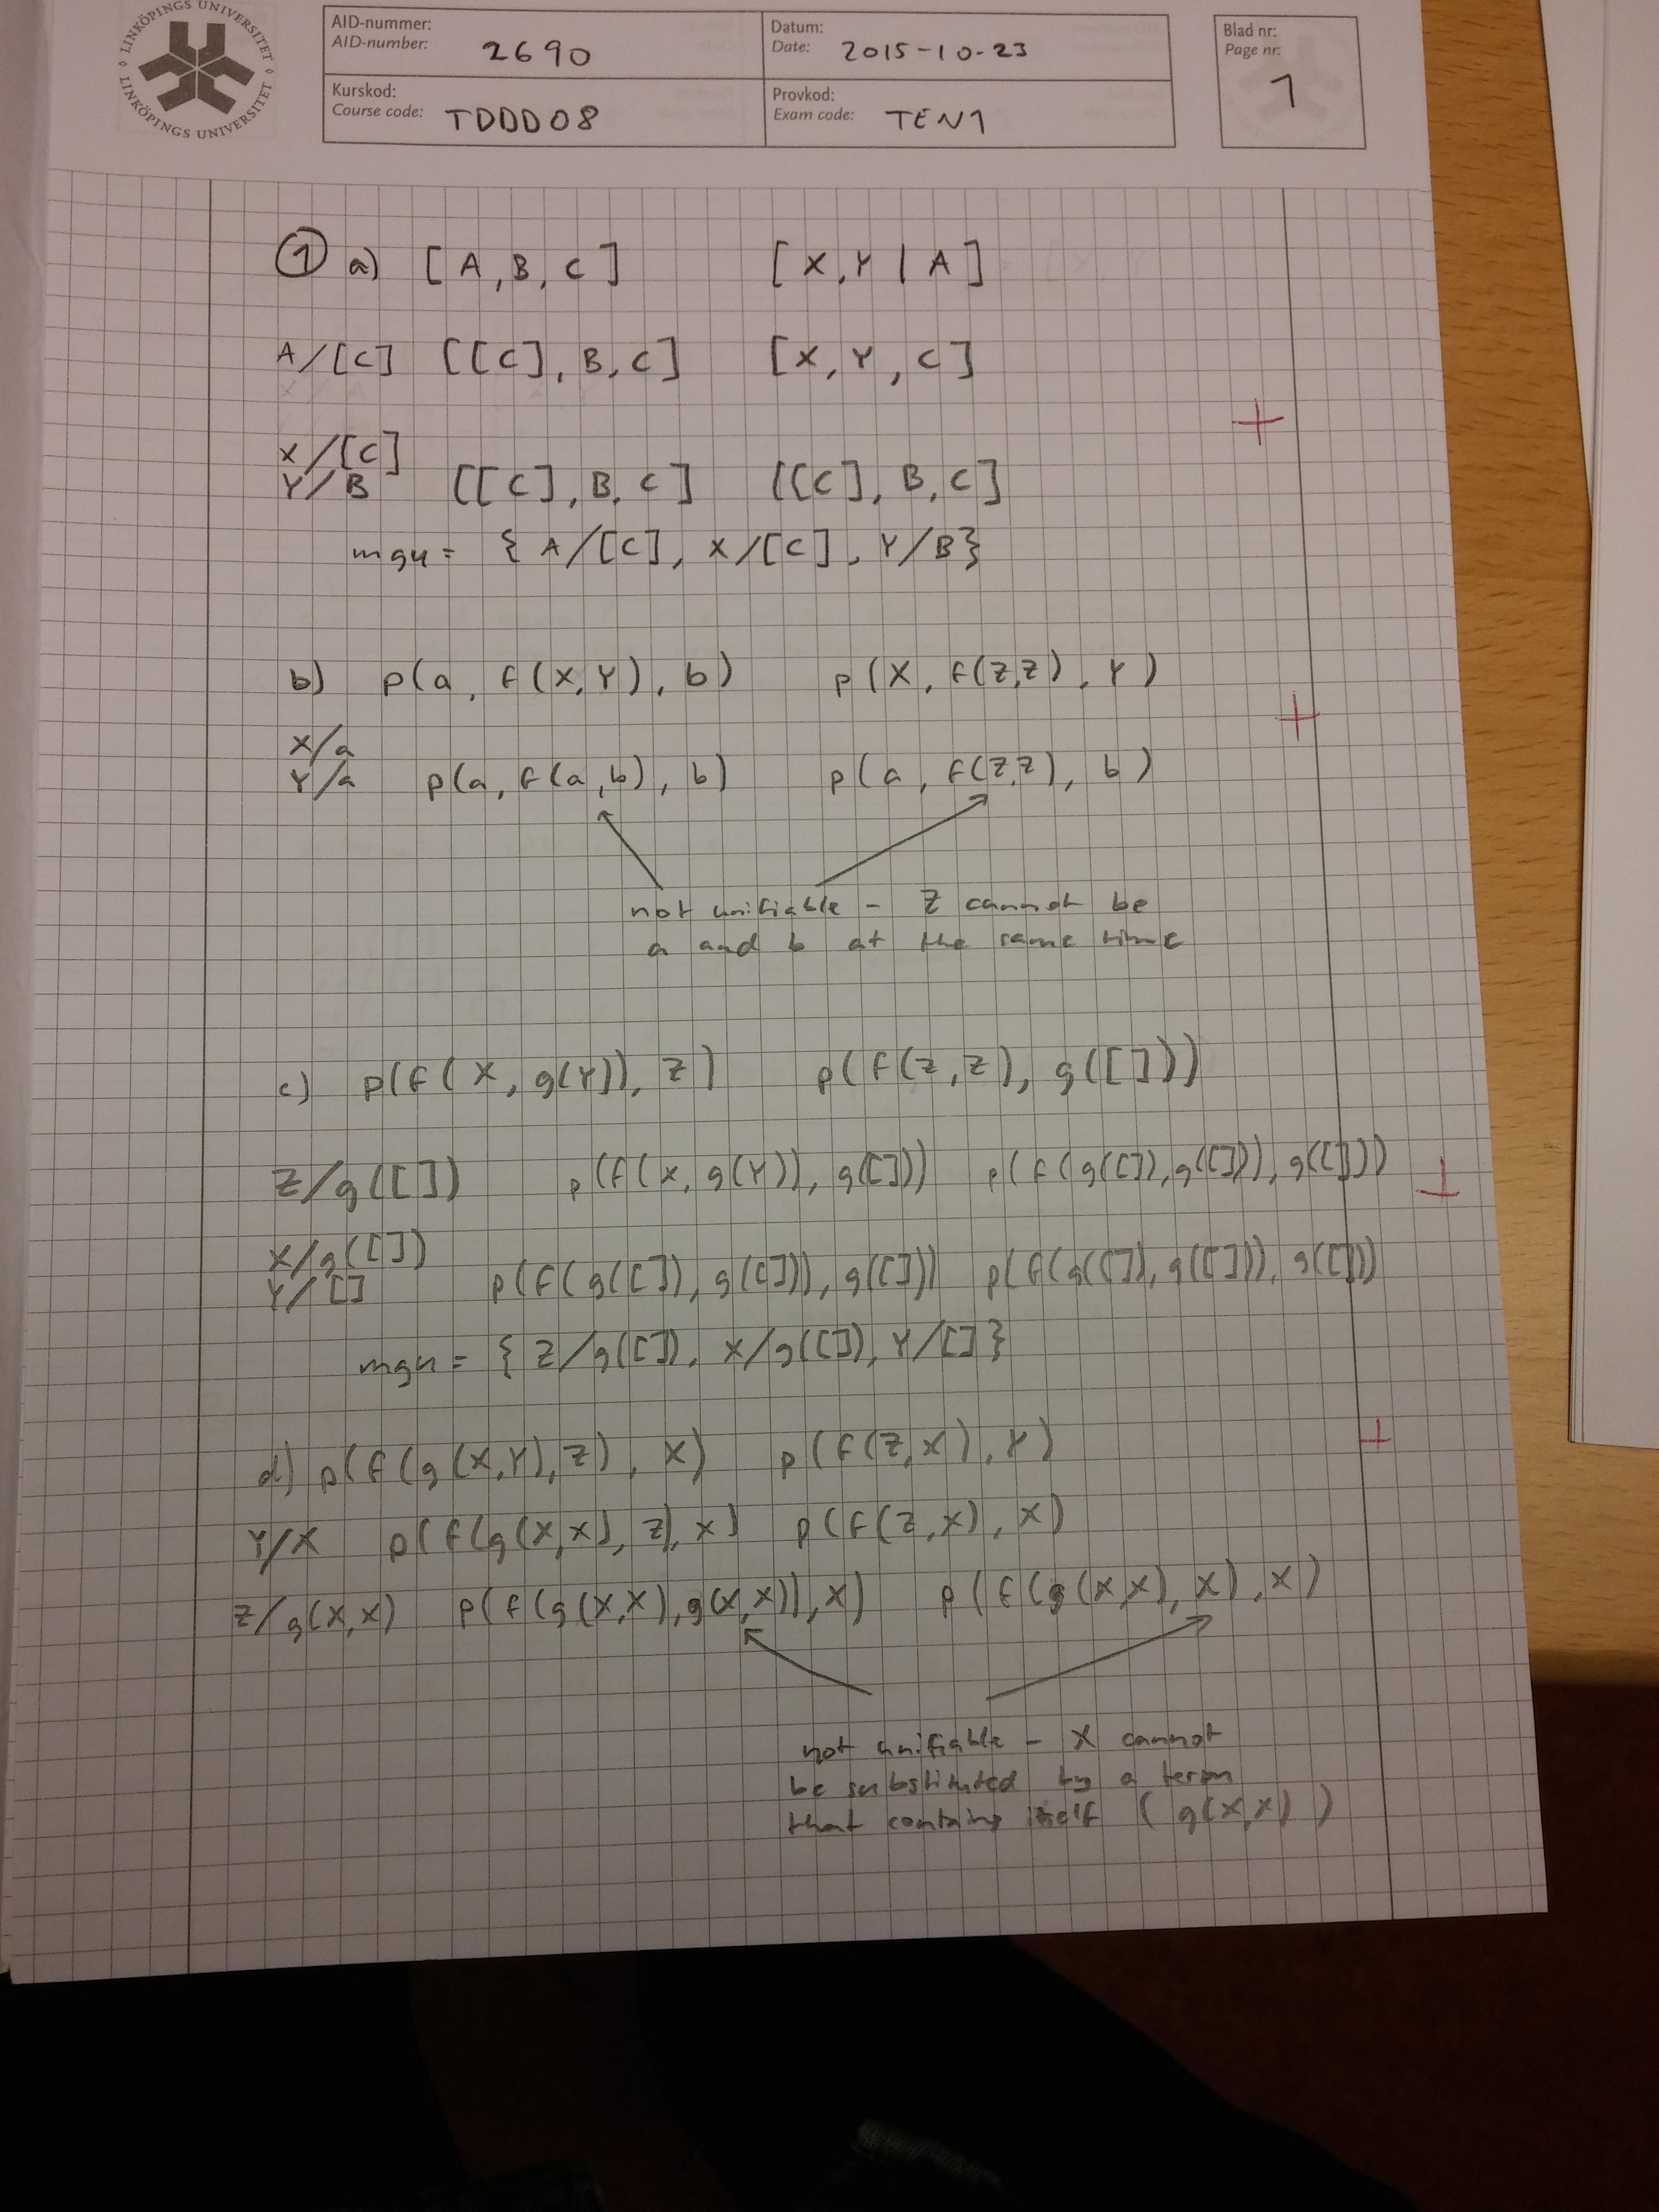 LINKÖPINGS UNIVERSITET
LINKÖPINGS UNIVERSITET
AID-nummer:
AID-number: 2690
Datum:
Date: 2015-10-23
Blad nr:
Page nr:
1
Kurskod:
Course code: TDDD08
Provkod:
Exam code: TEN1
1 a) [A, B, C] [X, Y | A]
A/[C] [[C], B, C] [X, Y, C]
X/[C]
Y/B [[C], B, C] [[C], B, C]
mgu = { A/[C], X/[C], Y/B}
b) p(a, f(X,Y), b) p(X, f(Z,Z), Y)
X/a
Y/a p(a, f(a,b), b) p(a, f(Z,Z), b)
not unifiable - Z cannot be
a and b at the same time
c) p(f(X, g(Y)), Z) p(f(Z,Z), g([]))
Z/g([]) p(f(X, g(Y)), g([])) p(f(g([]),g([])), g([]))
X/g([])
Y/[] p(f(g([]), g([])), g([])) p(f(g([]), g([])), g([]))
mgu = { Z/g([]), X/g([]), Y/[] }
d) p(f(g(X,Y),Z), X) p(f(Z,X), Y)
Y/X p(f(g(X,X), Z), X) p(f(Z,X), X)
Z/g(X,X) p(f(g(X,X),g(X,X)),X) p(f(g(X,X), X),X)
not unifiable - X cannot
be substituted by a term
that contains itself (g(X,X))